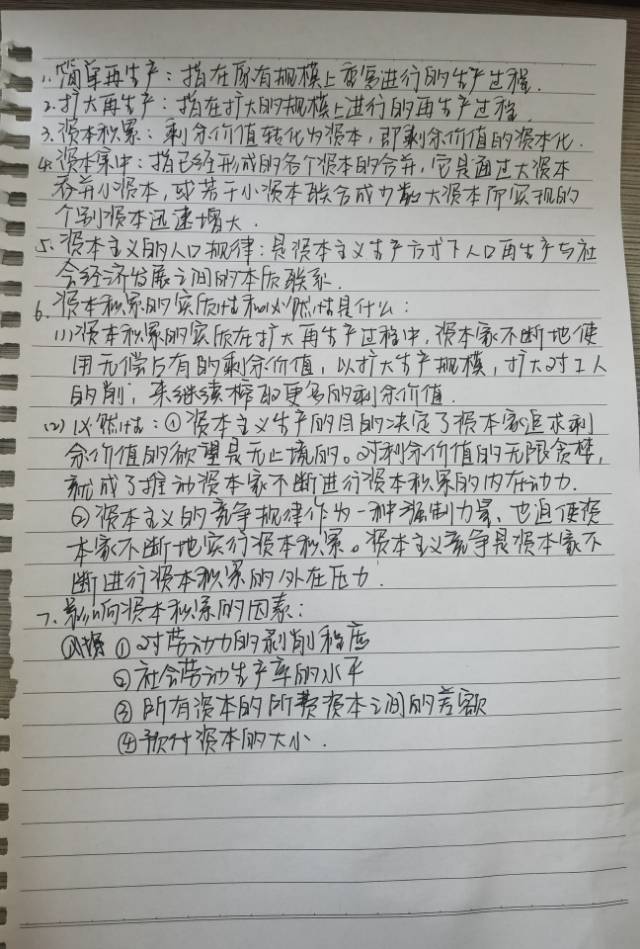 1. 简单再生产：指在原有规模上重复进行的生产过程.
2. 扩大再生产：指在扩大的规模上进行的再生产过程.
3. 资本积累：剩余价值转化为资本，即剩余价值的资本化.
4. 资本集中：指已经形成的各个资本的合并，它是通过大资本
吞并小资本，或若干小资本联合成少数大资本而实现的
个别资本迅速增大.
5. 资本主义的人口规律：是资本主义生产方式下人口再生产与社
会经济发展之间的本质联系.
6. 资本积累的实质性和必然性是什么：
(1) 资本积累的实质在扩大再生产过程中，资本家不断地使
用无偿占有的剩余价值，以扩大生产规模，扩大对工人
的削，来继续榨取更多的剩余价值.
(2) 必然性：①资本主义生产的目的决定了资本家追求剩
余价值的欲望是无止境的。对剩余价值的无限贪婪，
就成了推动资本家不断进行资本积累的内在动力.
②资本主义的竞争规律作为一种强制力量、也迫使资
本家不断地实行资本积累。资本主义竞争是资本家不
断进行资本积累的外在压力.
7. 影响资本积累的因素：
①对劳动力的剥削程度
②社会劳动生产率的水平
③所有资本的所费资本之间的差额
④预付资本的大小.